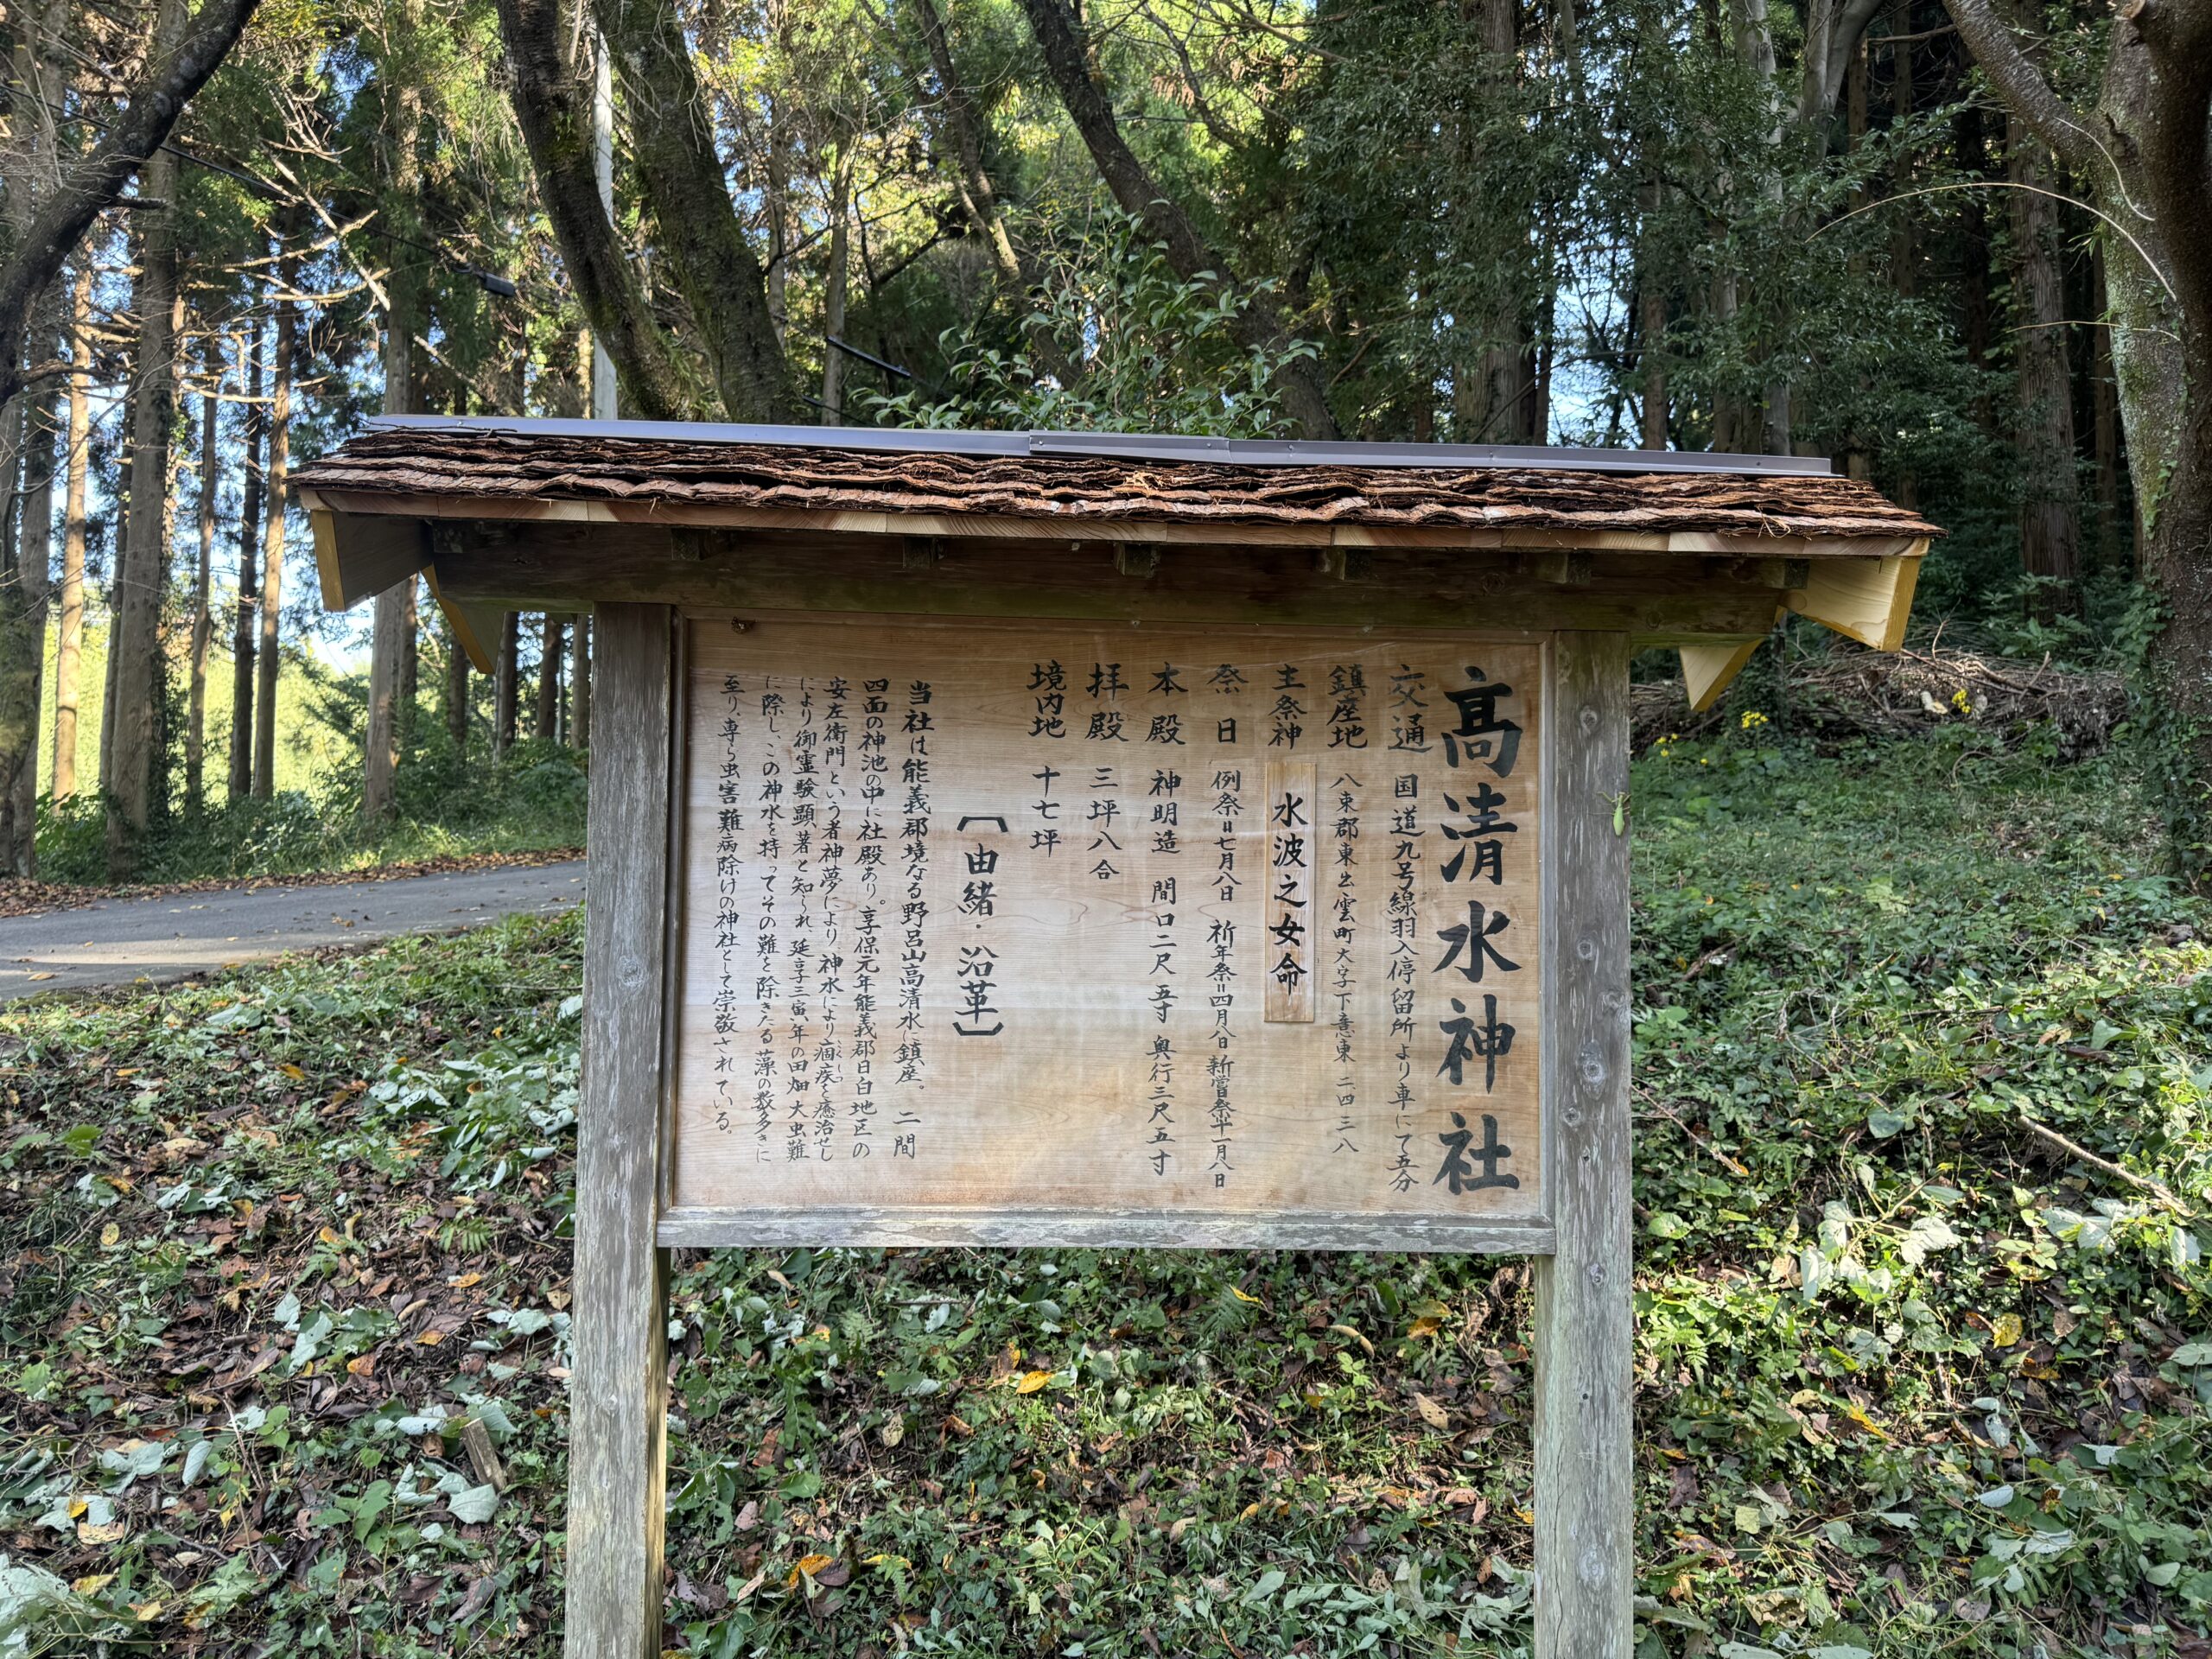 高清水神社
交通 国道九号線羽入停留所より車にて五分
鎮座地 八束郡東出雲町大字下意東二四三八
主祭神 水波之女命
祭日 例祭=七月八日 祈年祭=四月八日 新嘗祭=十一月八日
本殿 神明造 間口二尺五寸 奥行三尺五寸
拝殿 三坪八合
境内地 十七坪
〔由緒・沿革〕
当社は能義郡境なる野呂山高清水に鎮座。二間
四面の神池の中に社殿あり。享保元年能義郡日白地区の
安左衛門という者神夢により、神水により痼疾を癒治せし
により御霊験顕著と知られ、延享三寅年の田畑大虫難
に際し、この神水を持ってその難を除きたる藻の数多きに
至り、専ら虫害難病除けの神社として崇敬されている。